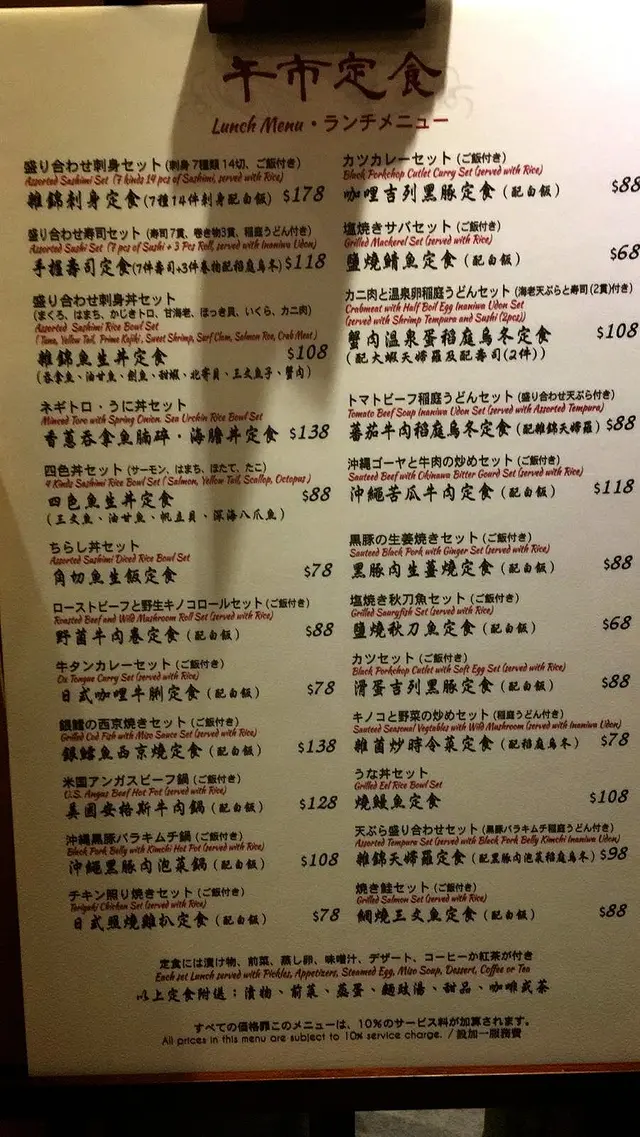 午市定食
Lunch Menu・ランチメニュー
盛り合わせ刺身セット (刺身7種類 14切、ご飯付き)
Assorted Sashimi Set (7 kinds 14 pcs of Sashimi, served with Rice)
雜錦刺身定食(7種14件刺身配白飯) $178
盛り合わせ寿司セット (寿司7貫、巻き物3貫、稲庭うどん付き)
Assorted Sushi Set (7 pcs of Sushi + 3 Pcs Roll, served with Inaniwa Udon)
手握壽司定食(7件壽司+3件卷物配稻庭烏冬) $118
盛り合わせ刺身丼セット
(まぐろ、はまち、かじきトロ、甘海老、ほっき貝、いくら、カニ肉)
Assorted Sashimi Rice Bowl Set
( Tuna, Yellow Tail, Prime Kajiki, Sweet Shrimp, Surf Clam, Salmon Roe, Crab Meat )
雜錦魚生丼定食 $108
(吞拿魚、油甘魚、劍魚、甜蝦、北寄貝、三文魚子、蟹肉)
ネギトロ・うに丼セット
Minced Toro with Spring Onion, Sea Urchin Rice Bowl Set
香蔥吞拿魚腩碎・海膽丼定食 $138
四色丼セット (サーモン、はまち、ほたて、たこ)
4 Kinds Sashimi Rice Bowl Set ( Salmon, Yellow Tail, Scallop, Octopus )
四色魚生丼定食 $88
(三文魚、油甘魚、帆立貝、深海八爪魚)
ちらし丼セット
Assorted Sashimi Diced Rice Bowl Set
角切魚生飯定食 $78
ローストビーフと野生キノコロールセット (ご飯付き)
Roasted Beef and Wild Mushroom Roll Set (served with Rice)
野菌牛肉卷定食 (配白飯) $88
牛タンカレーセット (ご飯付き)
Ox Tongue Curry Set (served with Rice)
日式咖哩牛脷定食 (配白飯) $78
銀鱈の西京焼きセット (ご飯付き)
Grilled Cod Fish with Miso Sauce Set (served with Rice)
銀鱈魚西京燒定食 (配白飯) $138
米国アンガスビーフ鍋 (ご飯付き)
U.S. Angus Beef Hot Pot (served with Rice)
美國安格斯牛肉鍋 (配白飯) $128
沖縄黒豚バラキムチ鍋 (ご飯付き)
Black Pork Belly with Kimchi Hot Pot (served with Rice)
沖繩黑豚肉泡菜鍋 (配白飯) $108
チキン照り焼きセット (ご飯付き)
Teriyaki Chicken Set (served with Rice)
日式照燒雞扒定食 (配白飯) $78
カツカレーセット (ご飯付き)
Black Porkchop Cutlet Curry Set (served with Rice)
咖哩吉列黑豚定食 (配白飯) $88
塩焼きサバセット (ご飯付き)
Grilled Mackerel Set (served with Rice)
鹽燒鯖魚定食 (配白飯) $68
カニ肉と温泉卵稲庭うどんセット (海老天ぷらと寿司 (2貫)付き)
Crabmeat with Half Boil Egg Inaniwa Udon Set
(served with Shrimp Tempura and Sushi (2pcs))
蟹肉溫泉蛋稻庭烏冬定食 $108
(配大蝦天婦羅及配壽司(2件))
トマトビーフ稲庭うどんセット (盛り合わせ天ぷら付き)
Tomato Beef Soup Inaniwa Udon Set (served with Assorted Tempura)
蕃茄牛肉稻庭烏冬定食(配雜錦天婦羅) $88
沖縄ゴーヤと牛肉の炒めセット (ご飯付き)
Sauteed Beef with Okinawa Bitter Gourd Set (served with Rice)
沖繩苦瓜牛肉定食 (配白飯) $118
黒豚の生姜焼きセット (ご飯付き)
Sauteed Black Pork with Ginger Set (served with Rice)
黑豚肉生薑燒定食 (配白飯) $88
塩焼き秋刀魚セット (ご飯付き)
Grilled Sauryfish Set (served with Rice)
鹽燒秋刀魚定食 (配白飯) $68
カツセット (ご飯付き)
Black Porkchop Cutlet with Soft Egg Set (served with Rice)
滑蛋吉列黑豚定食 (配白飯) $88
キノコと野菜の炒めセット (稲庭うどん付き)
Sauteed Seasonal Vegetables with Wild Mushroom (served with Inaniwa Udon)
雜菌炒時令菜定食 (配稻庭烏冬) $78
うな丼セット
Grilled Eel Rice Bowl Set
燒鰻魚定食 $108
天ぷら盛り合わせセット (黒豚バラキムチ稲庭うどん付き)
Assorted Tempura Set (served with Black Pork Belly Kimchi Inaniwa Udon)
雜錦天婦羅定食 (配黑豚肉泡菜稻庭烏冬) $98
焼き鮭セット (ご飯付き)
Grilled Salmon Set (served with Rice)
網燒三文魚定食 (配白飯) $88
定食には漬け物、前菜、蒸し卵、味噌汁、デザート、コーヒーか紅茶が付き
Each set Lunch served with Pickles, Appetizers, Steamed Egg, Miso Soup, Dessert, Coffee or Tea
以上定食附送：漬物、前菜、蒸蛋、麵豉湯、甜品、咖啡或茶
すべての価格罪このメニューは、10%のサービス料が加算されます。
All prices in this menu are subject to 10% service charge. / 設加一服務費